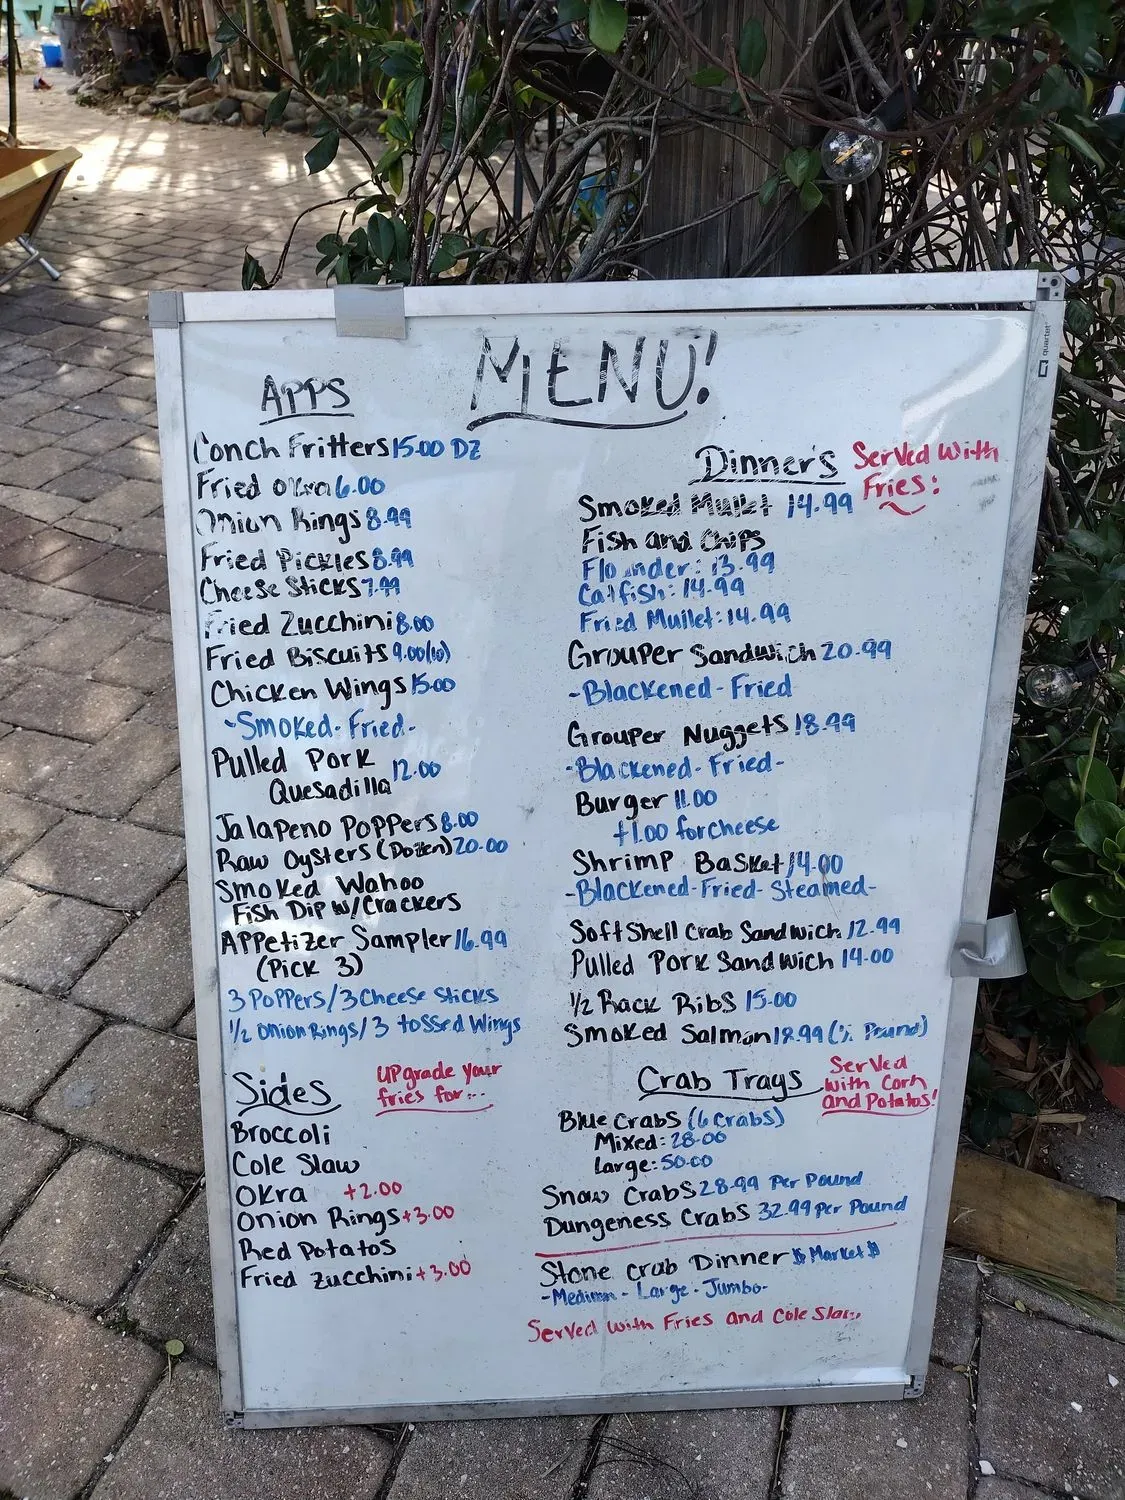 MENU!
APPS
Conch Fritters 15.00 DZ
Fried Okra 6.00
Onion Rings 8.99
Fried Pickles 8.99
Cheese Sticks 7.99
Fried Zucchini 8.00
Fried Biscuits 9.00 (10)
Chicken Wings 15.00
-Smoked-Fried-
Pulled Pork
Quesadilla 12.00
Jalapeno Poppers 8.00
Raw Oysters (Dozen) 20.00
Smoked Wahoo
Fish Dip w/Crackers
Appetizer Sampler 16.99
(Pick 3)
3 Poppers/3 Cheese Sticks
1/2 Onion Rings/3 tossed Wings
Sides
upgrade your
fries for...
Broccoli
Cole Slaw
Okra +2.00
Onion Rings +3.00
Red Potatos
Fried Zucchini +3.00
Dinner's
Served With
Fries:
Smoked Mullet 14.99
Fish and Chips
Flounder: 13.99
Catfish: 14.99
Fried Mullet: 14.99
Grouper Sandwich 20.99
-Blackened-Fried
Grouper Nuggets 18.99
-Blackened-Fried-
Burger 11.00
+1.00 for cheese
Shrimp Basket 14.00
-Blackened-Fried-Steamed-
Soft Shell Crab Sandwich 12.99
Pulled Pork Sandwich 14.00
1/2 Rack Ribs 15.00
Smoked Salmon 18.99 (1/2 Pound)
Crab Trays
Served
with Corn
and Potatos!
Blue Crabs (6 crabs)
Mixed: 28.00
Large: 50.00
Snow Crabs 28.99 Per Pound
Dungeness Crabs 32.99 per Pound
Stone Crab Dinner $ Market $
-Medium-Large-Jumbo-
Served with Fries and Cole Slaw
quartet